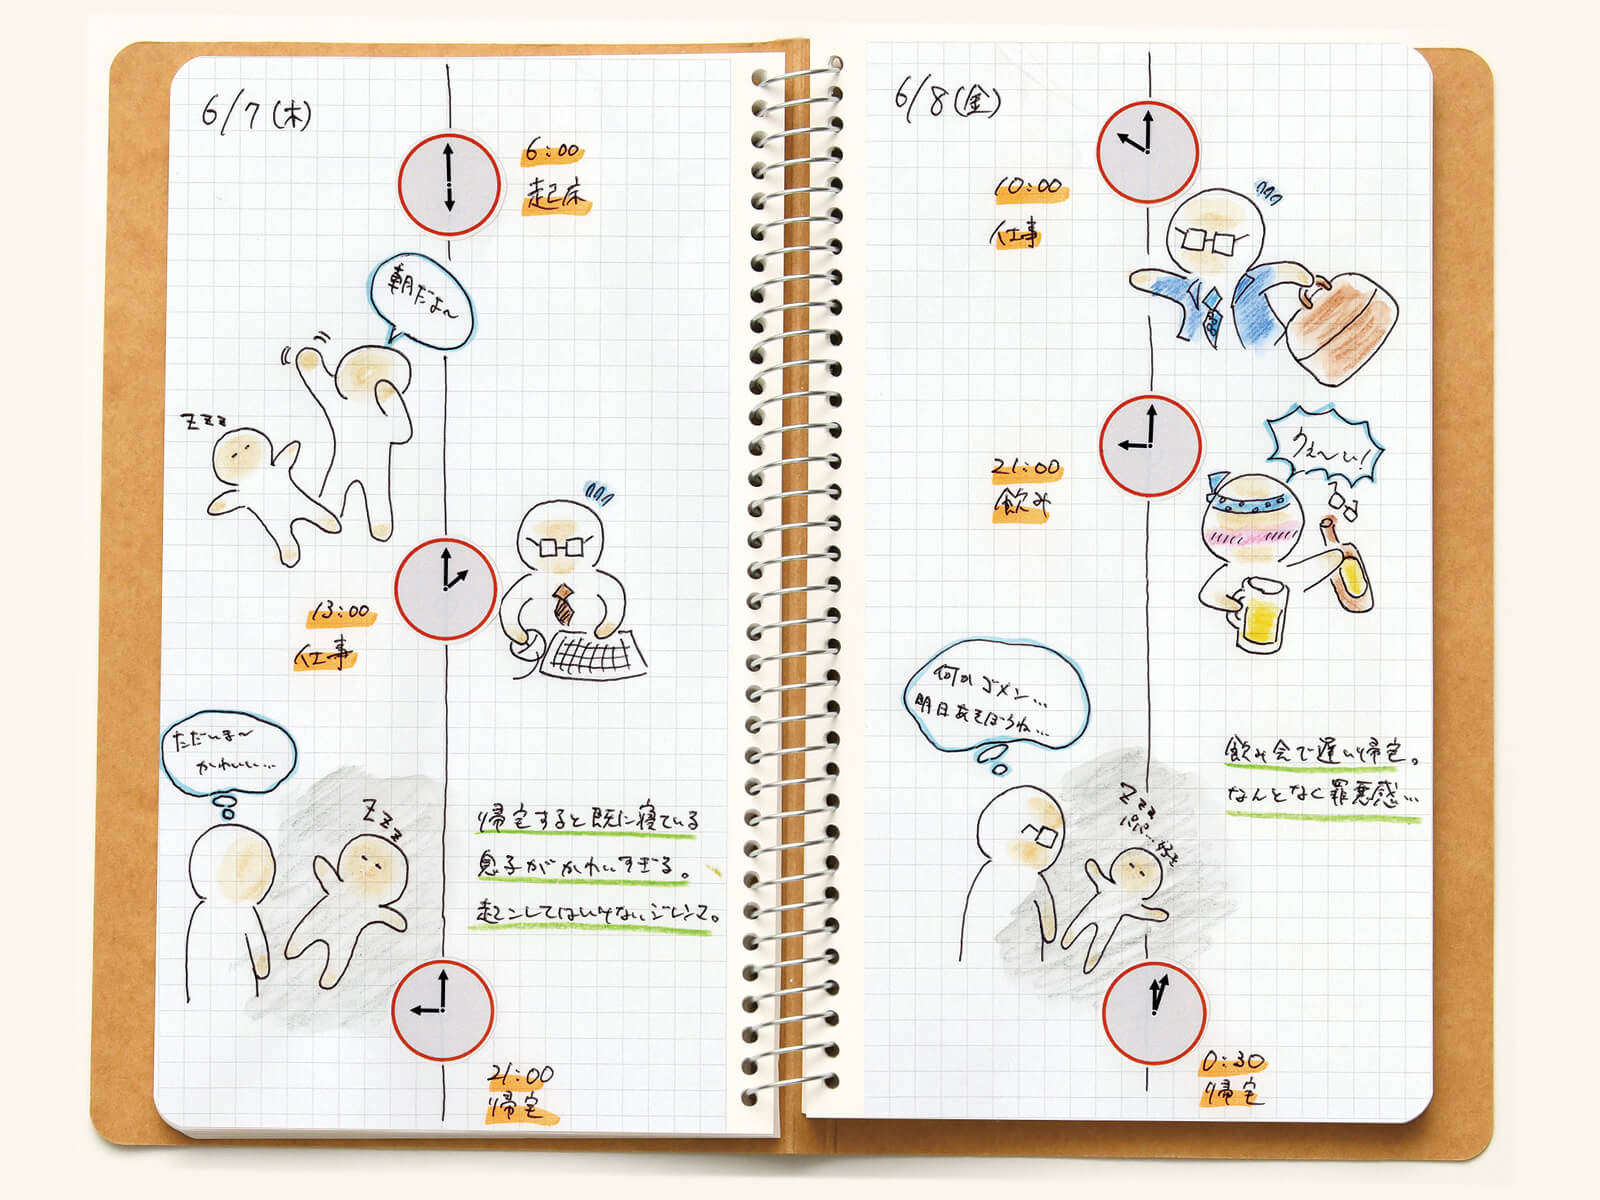 6/7(木)
6:00
起床
朝だよ〜
zzz
13:00
仕事
ただいま〜
かわいい…
Zzz
帰宅すると既に寝ている
息子がかわいすぎる。
起こしてはいけないジレンマ。
21:00
帰宅
6/8(金)
10:00
仕事
21:00
飲み
うぇ〜い!
何かゴメン…
明日あそぼうね…
zzz
パパ…好き
飲み会で遅い帰宅。
なんとなく罪悪感…
0:30
帰宅